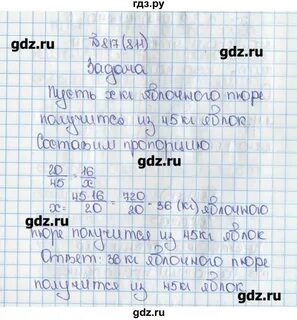 гдз.ру
№ 817 (811)
Задача
Пусть x кг яблочного пюре
получится из 45 кг яблок
Составим пропорцию
20/45 = 16/x
x = 45·16/20 = 720/20 = 36 (кг) яблочного
пюре получится из 45 кг яблок
Ответ: 36 кг яблочного пюре
получится из 45 кг яблок
гдз.ру